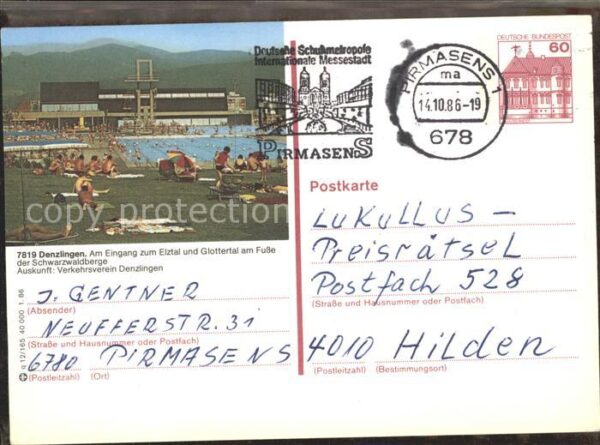 Deutsche Schuhmetropole
Internationale Messestadt
PIRMASENS
PIRMASENS 1
ma
14.10.86-19
678
DEUTSCHE BUNDESPOST
60
copy protection
7819 Denzlingen, Am Eingang zum Elztal und Glottertal am Fuße
der Schwarzwaldberge
Auskunft: Verkehrsverein Denzlingen
J. GENTNER
(Absender)
NEUFFERSTR. 31
(Straße und Hausnummer oder Postfach)
6780 PIRMASENS
(Postleitzahl) (Ort)
q 12/165 40 000 1. 86
Postkarte
LUKULLUS –
Preisrätsel
Postfach 528
(Straße und Hausnummer oder Postfach)
4010 Hilden
(Postleitzahl) (Bestimmungsort)